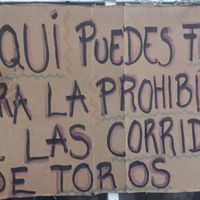 AQUI PUEDES F
RA LA PROHIBI
LAS CORRID
DE TOROS